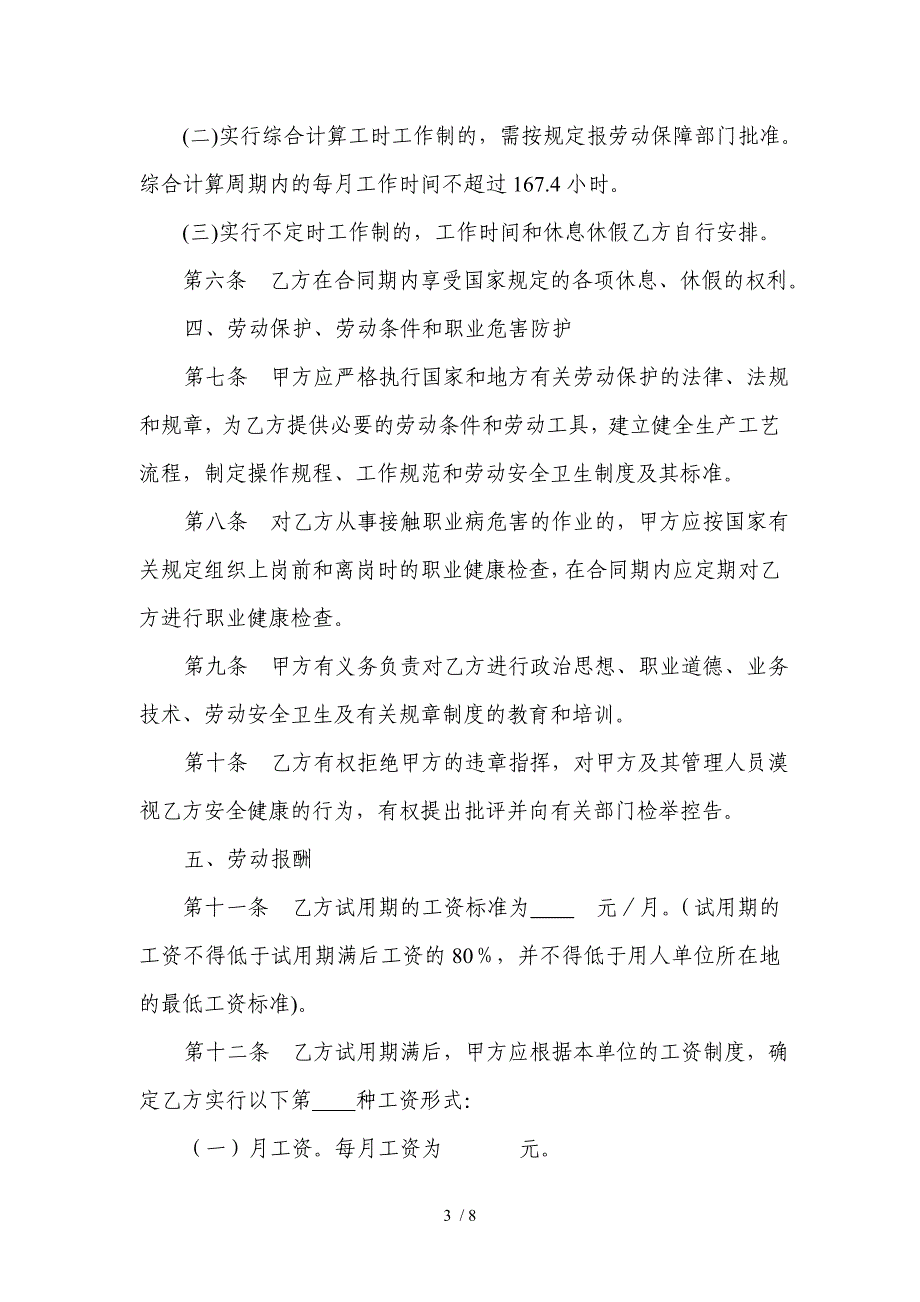 (二)实行综合计算工时工作制的，需按规定报劳动保障部门批准。
综合计算周期内的每月工作时间不超过 167.4 小时。
(三)实行不定时工作制的，工作时间和休息休假乙方自行安排。
第六条　乙方在合同期内享受国家规定的各项休息、休假的权利。
四、劳动保护、劳动条件和职业危害防护
第七条　甲方应严格执行国家和地方有关劳动保护的法律、法规
和规章，为乙方提供必要的劳动条件和劳动工具，建立健全生产工艺
流程，制定操作规程、工作规范和劳动安全卫生制度及其标准。
第八条　对乙方从事接触职业病危害的作业的，甲方应按国家有
关规定组织上岗前和离岗时的职业健康检查，在合同期内应定期对乙
方进行职业健康检查。
第九条　甲方有义务负责对乙方进行政治思想、职业道德、业务
技术、劳动安全卫生及有关规章制度的教育和培训。
第十条　乙方有权拒绝甲方的违章指挥，对甲方及其管理人员漠
视乙方安全健康的行为，有权提出批评并向有关部门检举控告。
五、劳动报酬
第十一条　乙方试用期的工资标准为____　元／月。（试用期的
工资不得低于试用期满后工资的 80％，并不得低于用人单位所在地
的最低工资标准)。
第十二条　乙方试用期满后，甲方应根据本单位的工资制度，确
定乙方实行以下第____种工资形式：
（一）月工资。每月工资为　　　　元。
3 / 8